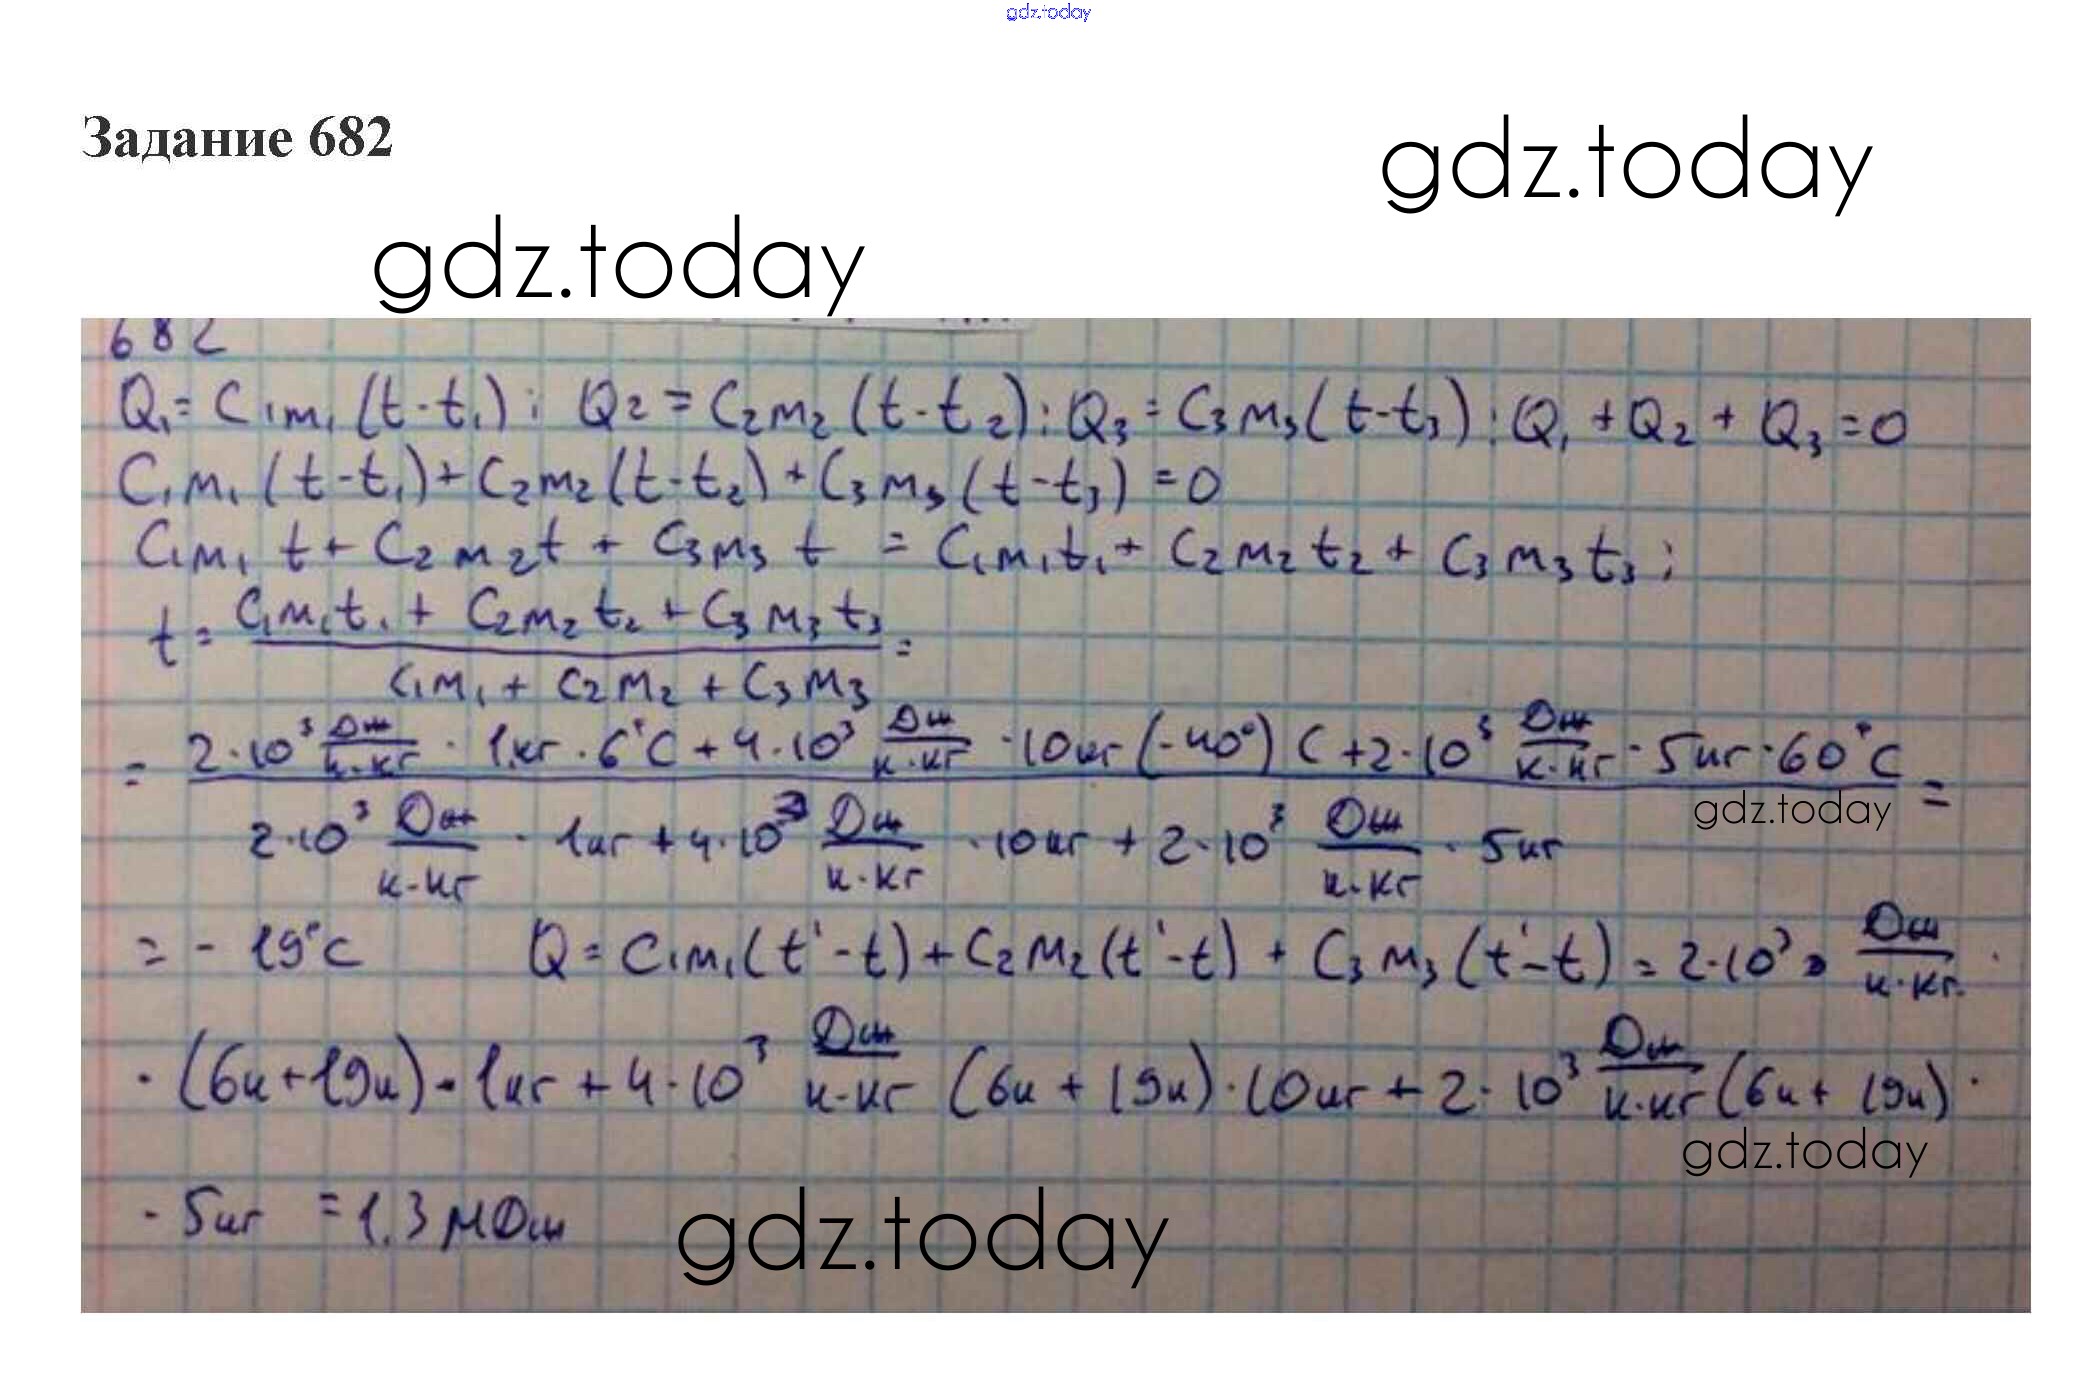 gdz.today
Задание 682
gdz.today
gdz.today
682
Q₁ = C₁m₁(t-t₁); Q₂ = C₂m₂(t-t₂); Q₃ = C₃m₃(t-t₃); Q₁ + Q₂ + Q₃ = 0
C₁m₁(t-t₁) + C₂m₂(t-t₂) + C₃m₃(t-t₃) = 0
C₁m₁t + C₂m₂t + C₃m₃t = C₁m₁t₁ + C₂m₂t₂ + C₃m₃t₃;
t = (C₁m₁t₁ + C₂m₂t₂ + C₃m₃t₃) / (C₁m₁ + C₂m₂ + C₃m₃) =
= 2·10³ Дж/к·кг · 1кг · 6°C + 4·10³ Дж/к·кг · 10кг (-40°)C + 2·10³ Дж/к·кг · 5кг · 60°C =
gdz.today
2·10³ Дж/к·кг · 1кг + 4·10³ Дж/к·кг · 10кг + 2·10³ Дж/к·кг · 5кг
= -19°C Q = C₁m₁(t'-t) + C₂m₂(t'-t) + C₃m₃(t'-t) = 2·10³ Дж/к·кг ·
· (6к+19к) · 1кг + 4·10³ Дж/к·кг (6к + 19к) · 10кг + 2·10³ Дж/к·кг (6к + 19к) ·
gdz.today
· 5кг = 1,3 МДж
gdz.today